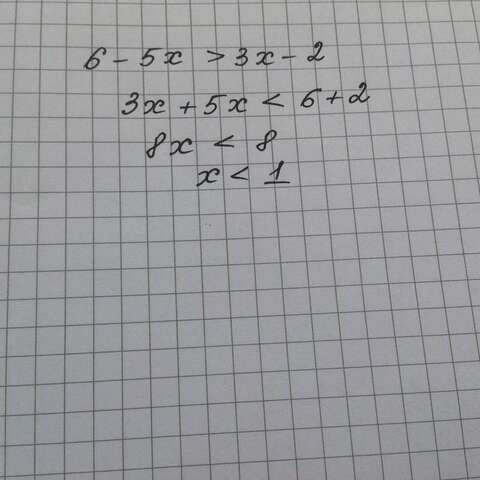 6 - 5x > 3x - 2
3x + 5x < 6 + 2
8x < 8
x < 1